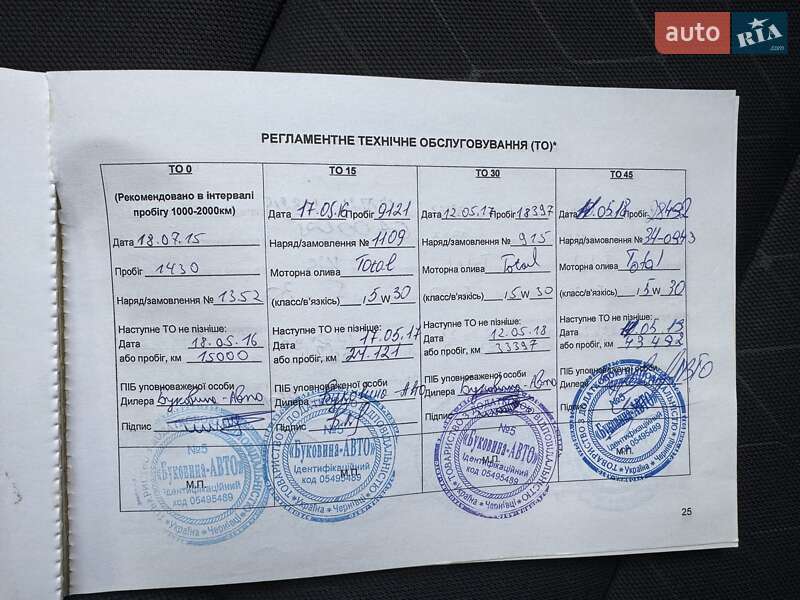 auto RIA .com
РЕГЛАМЕНТНЕ ТЕХНІЧНЕ ОБСЛУГОВУВАННЯ (ТО)*
ТО 0
(Рекомендовано в інтервалі
пробігу 1000-2000км)
Дата 18.07.15
Пробіг 1430
Наряд/замовлення № 1352
Наступне ТО не пізніше:
Дата 18.05.16
або пробіг, км 15000
ПІБ уповноваженої особи
Дилера Буковина-Авто
Підпис
№5
«Буковина-АВТО»
Ідентифікаційний
код 05495489
М.П.
Україна * Чернівці
ТО 15
Дата 17.05.16 Пробіг 9121
Наряд/замовлення № 1109
Моторна олива Total
(класс/в'язкість) 5 w 30
Наступне ТО не пізніше:
Дата 17.05.17
або пробіг, км 24.121
ПІБ уповноваженої особи
Дилера Буковина-Авто
Підпис
№5
«Буковина-АВТО»
Ідентифікаційний
код 05495489
М.П.
Україна * Чернівці
ТО 30
Дата 12.05.17 Пробіг 18397
Наряд/замовлення № 915
Моторна олива Total
(класс/в'язкість) 5 w 30
Наступне ТО не пізніше:
Дата 12.05.18
або пробіг, км 33397
ПІБ уповноваженої особи
Дилера Буковина-Авто
Підпис
№5
«Буковина-АВТО»
Ідентифікаційний
код 05495489
М.П.
Україна * Чернівці
ТО 45
Дата 05.18 Пробіг 28492
Наряд/замовлення №
Моторна олива Total
(класс/в'язкість) 5 w 30
Наступне ТО не пізніше:
Дата 05.19
або пробіг, км 43492
ПІБ уповноваженої особи
Дилера
Підпис
«Буковина-АВТО»
Ідентифікаційний
код 05495489
М.П.
Україна * Чернівці
25